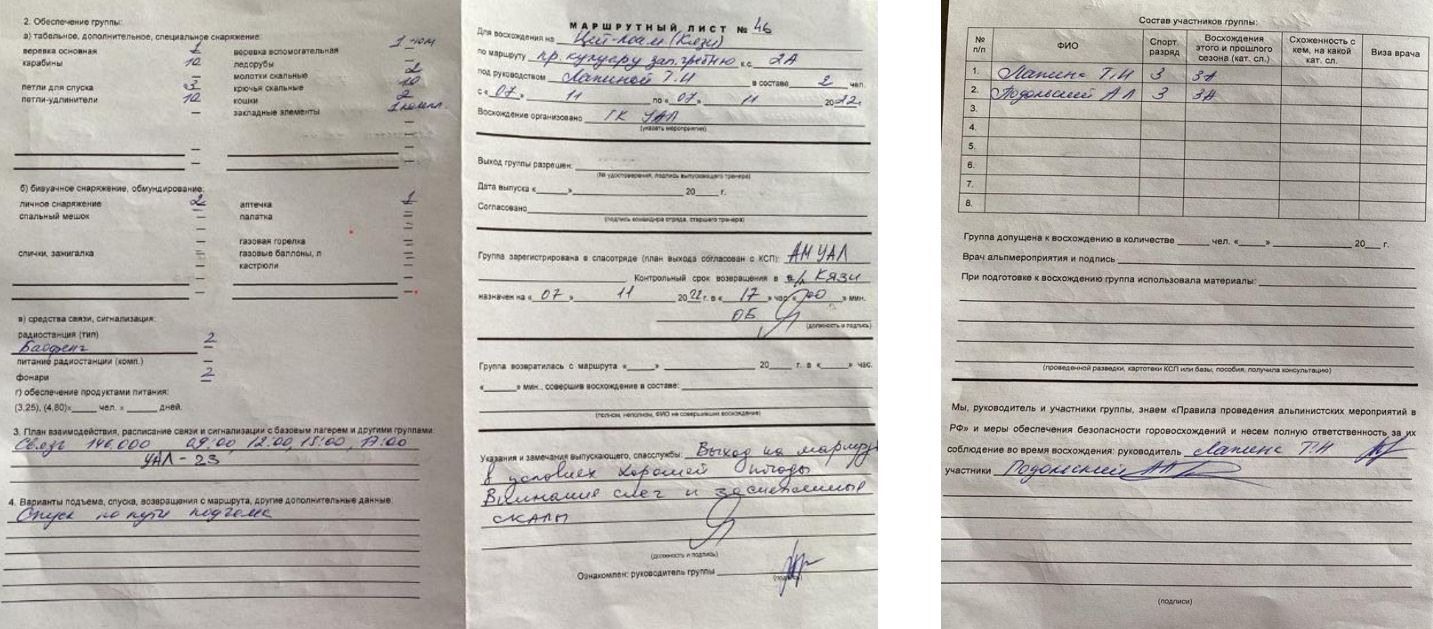 2. Обеспечение группы:
а) табельное, дополнительное, специальное снаряжение:
веревка основная 1 веревка вспомогательная 1
карабины 10 ледорубы –
молотки скальные 2
петли для спуска 3 крючья скальные 10
петли-удлинители 10 кошки 2
– закладные элементы 1 компл.
б) бивуачное снаряжение, обмундирование:
личное снаряжение 2 аптечка 1
спальный мешок – палатка –
газовая горелка –
спички, зажигалка – газовые баллоны, л –
кастрюли –
в) средства связи, сигнализация:
радиостанция (тип) 2
Баофенг
питание радиостанции (комп.) –
фонари 2
г) обеспечение продуктами питания:
(3,25), (4,80)×_____ чел. × _____ дней.
3. План взаимодействия, расписание связи и сигнализации с базовым лагерем и другими группами:
Связь 146.000 09:00, 12:00, 15:00, 17:00
УАЛ - 23
4. Варианты подъема, спуска, возвращения с маршрута, другие дополнительные данные:
Спуск по пути подъема
МАРШРУТНЫЙ ЛИСТ № 46
Для восхождения на Цей-Лоам (Кязи)
по маршруту пр. кулуару зап. гребню к.с. 2А
под руководством Лапиной Т.Н в составе 2 чел.
с «07» 11 по «07» 11 2022.
Восхождение организовано ГК УАЛ
(указать мероприятие)
Выход группы разрешен:
(№ удостоверения, подпись выпускающего тренера)
Дата выпуска «_____» __________ 20____ г.
Согласовано
(подпись командира отряда, старшего тренера)
Группа зарегистрирована в спасотряде (план выхода согласован с КСП): АМ УАЛ
Контрольный срок возвращения в а/л Кязи
назначен на «07» 11 2022 г. в «17» час. «00» мин.
ОБ
(должность и подпись)
Группа возвратилась с маршрута «_____» __________ 20____ г. в «_____» час.
«_____» мин., совершив восхождение в составе:
(полном, неполном, ФИО не совершивших восхождение)
Указания и замечания выпускающего, спасслужбы: Выход на маршру
в условиях хорошей погоды
Внимание снег и заснеженные
скалы
(должность и подпись)
Ознакомлен: руководитель группы
(подпись)
Состав участников группы:
№ п/п ФИО Спорт. разряд Восхождения этого и прошлого сезона (кат. сл.) Схоженность с кем, на какой кат. сл. Виза врача
1. Лапина Т.Н 3 3А
2. Подольский А Л 3 3А
3.
4.
5.
6.
7.
8.
Группа допущена к восхождению в количестве ______ чел. «_____» __________ 20___ г.
Врач альпмероприятия и подпись
При подготовке к восхождению группа использовала материалы:
(проведенной разведки, картотеки КСП или базы, пособия, получила консультацию)
Мы, руководитель и участники группы, знаем «Правила проведения альпинистских мероприятий в
РФ» и меры обеспечения безопасности горовосхождений и несем полную ответственность за их
соблюдение во время восхождения: руководитель Лапина Т.Н
участники Подольский АЛ
(подписи)